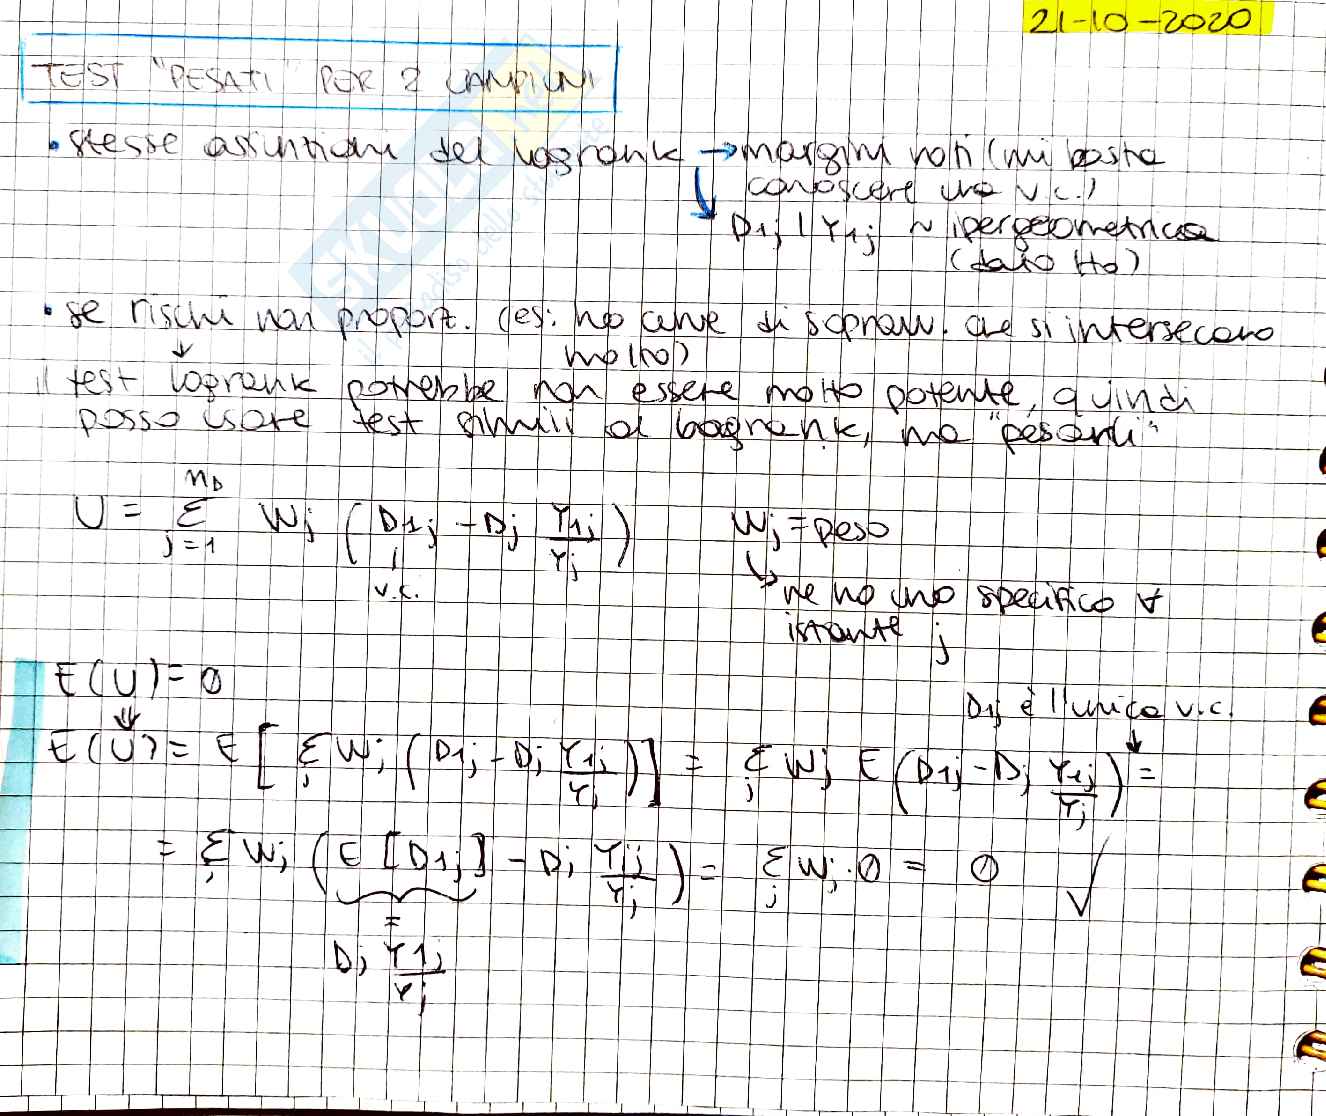 21-10-2020
TEST "PESATI" PER 2 CAMPIONI
• stesse assunzioni del logrank → margini noti (mi basta
conoscere una v.c.)
D1j | Y1j ~ ipergeometrica
(dato H0)
• se rischi non proport. (es: ho curve di sopravv. che si intersecano
molto)
il test logrank potrebbe non essere molto potente, quindi
posso usare test simili al logrank, ma "pesanti"
U = Σ_{j=1}^{nD} Wj (D1j - Dj Y1j/Yj) Wj = peso
v.c.
↳ ne ho uno specifico ∀
istante j
E(U) = 0
D1j è l'unica v.c.
E(U) = E[Σj Wj (D1j - Dj Y1j/Yj)] = Σj Wj E(D1j - Dj Y1j/Yj) =
= Σj Wj (E[D1j] - Dj Y1j/Yj) = Σj Wj · 0 = 0 √
=
Dj Y1j/Yj
SKUOLA
il paradiso dello studente